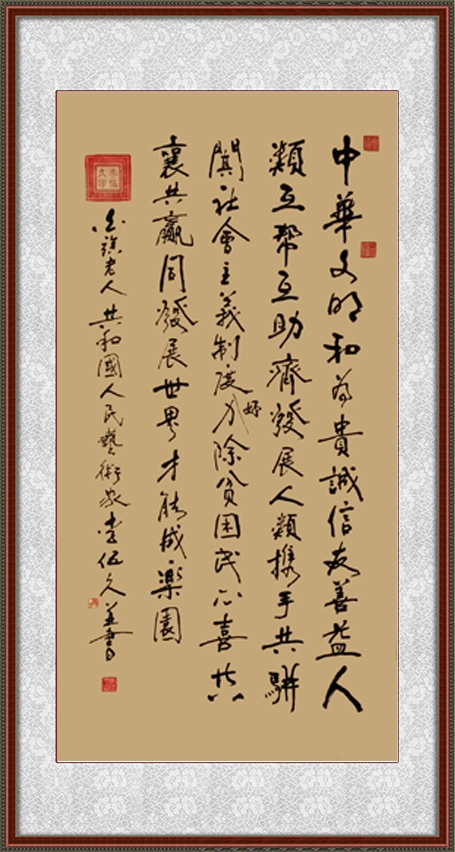 中華文明和為貴誠信友善益人
類互帮互助齊發展人類攜手共駢
闐社會主義制度好力除貧困民心喜共
襄共贏同發展世界才能成樂園
老人共和國人民藝術家李伍久並書